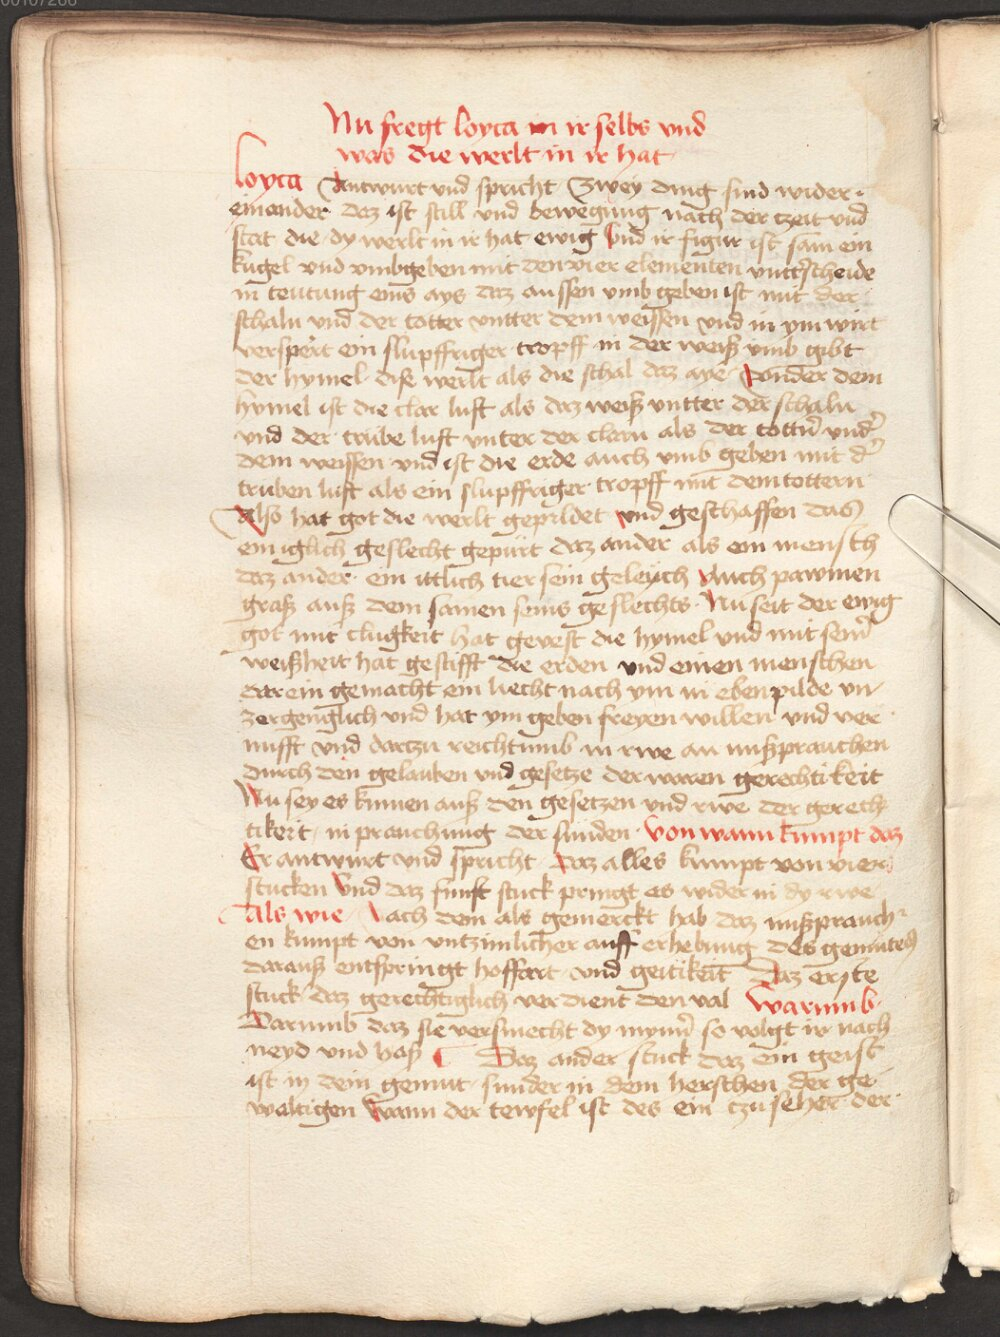 00107206
Nu fregt loyca in ir selbs und
was die werlt in ir hat
Loyca Antwurt und spricht Zwey ding sind wider
einander daz ist still und bewegung nach der tzeit und
stat die dy werlt in ir hat ewig Und ir figur ist sam ein
kugel und umbgeben mit den vier elementen untterscheide
in teutung eins ays daz aussen umb geben ist mit der
schaln und der totter untter dem weissen und in ym wirt
verspert ein slupffriger tropff in der weiß umb gibt
der hymel dise werlt als die schal daz aye Vonder dem
hymel ist die clar luft als daz weiß untter der schaln
und der trube luft unter der clarn als der tottñ und̾
dem weissen und ist die erde auch umb geben mit d̾
truben luft als ein slupffriger tropff mit dem tottern
Also hat got die werlt gepildet und geschaffen das
ein iglich geslecht gepurt daz ander als ein mensch
daz ander ein ittlich tier sein geleych Auch pawmen
graß auß dem samen seins geslechts Nu seit der ewig
got mit clugkeit hat gevest die hymel und mit sein̄
weißheit hat gestifft die erden und einen menschen
darein gemacht ein liecht nach ym in ebenpilde un
zergenglich und hat ym geben freyen willen und ver
nufft und dartzu reichtumb in rwe an mißprauchen
durch den gelauben und gesetze der waren gerechtikeit
Nu sey es kumen auß den gesetzen und rwe der gerech
tikeit in prauchung der sunden von wann kumpt daz
Er antwurt und spricht Daz alles kumpt von vier
stucken Und daz funft stuck pringt es wider in dy rwe
Als wie Nach dem als gemerckt hab daz mißprauch
en kumpt von untzimlicher auff erhebung des gemutes
darauß entspringt hoffart und geitikeit Daz erste
stuck daz gerechtiglich verdient den val Warumb
Darumb daz sie versmecht dy mynñ so volgt ir nach
neyd und haß Daz ander stuck daz ein geist
ist in dein gemut sunder in dem herschen der ge
waltigen Wann der tewfel ist des ein tzuseher der